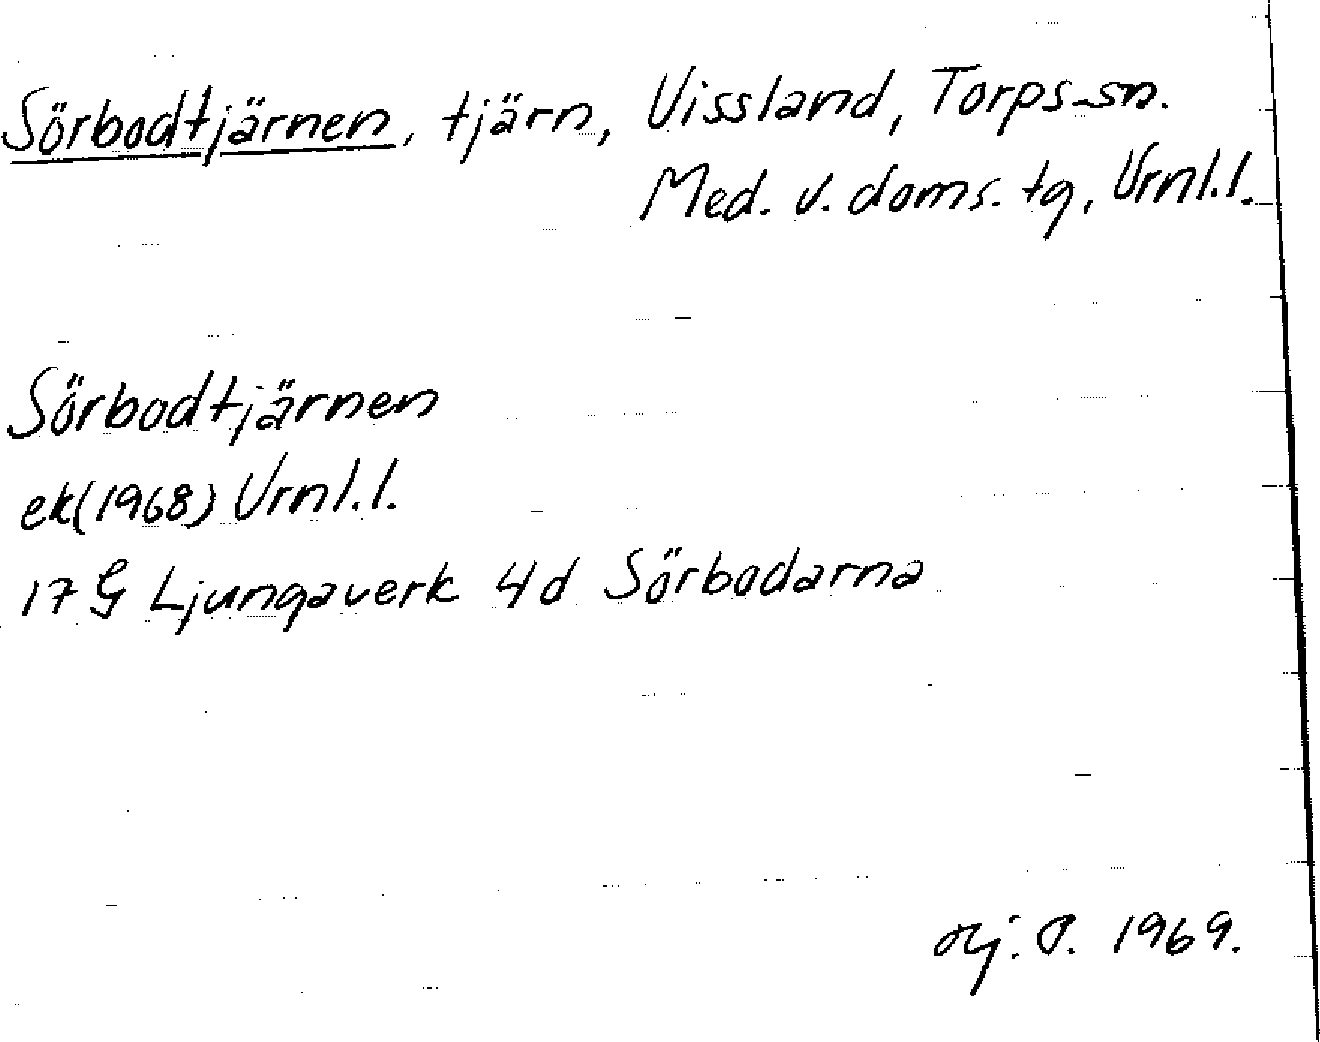 Sörbodtjärnen, tjärn, Vissland, Torps sn.
Med. v. doms. tg, Vrnl.l.
Sörbodtjärnen
ek(1968) Vrnl.l.
17 G Ljungaverk 4d Sörbodarna
1969.